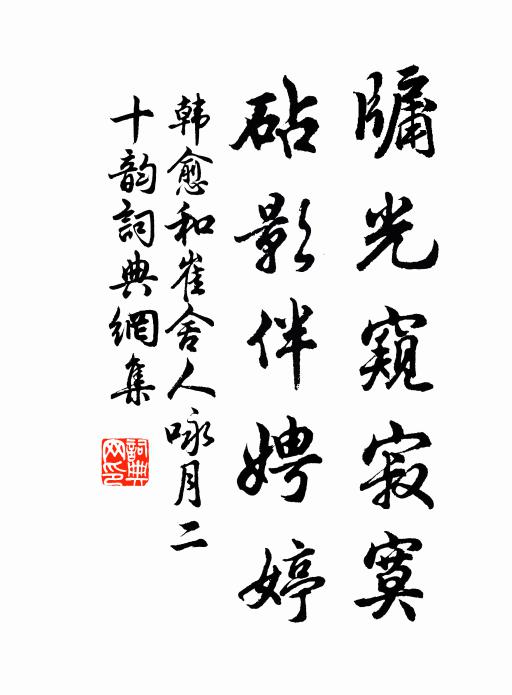 牖光窺寂寞
砧影伴娉婷
韩愈和崔舍人咏月二
十韵詞典網集
詞典
网印